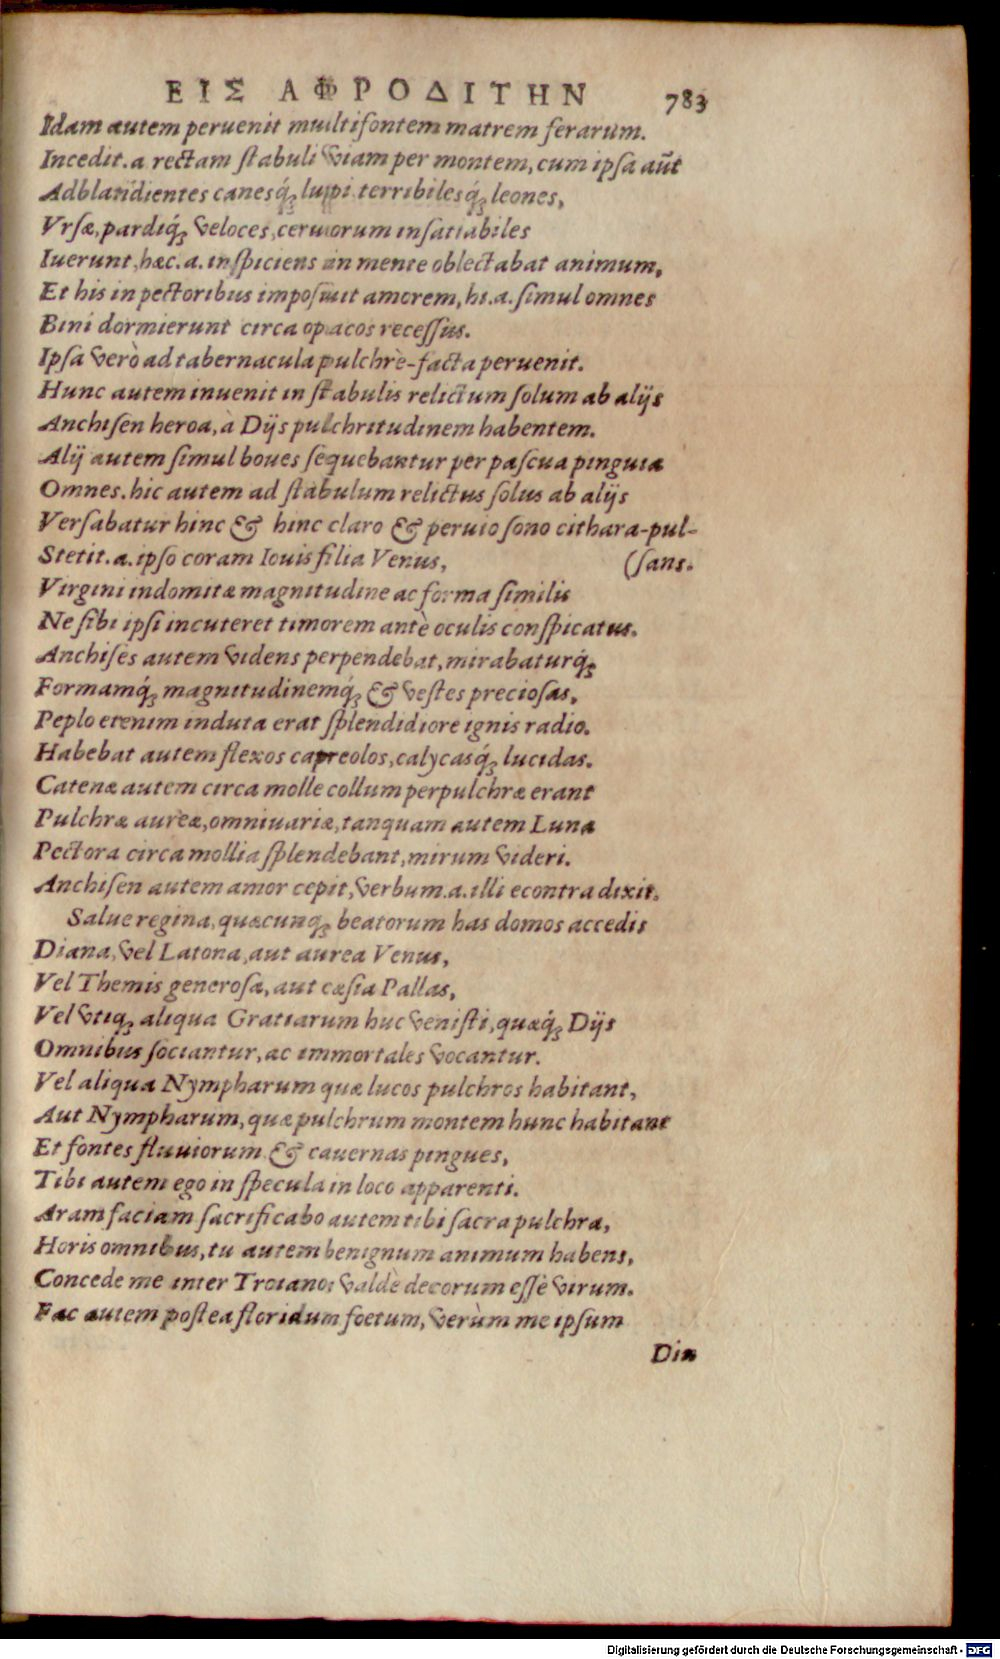 ΕΙΣ ΑΦΡΟΔΙΤΗΝ 783
Idam autem peruenit multifontem matrem ferarum.
Incedit.a rectam stabuli viam per montem, cum ipsa aũt
Adblandientes canesq́; lupi terribilesq́; leones,
Vrsæ, pardiq́; veloces, ceruorum insatiabiles
Iuerunt, hæc.a. inspiciens in mente oblectabat animum,
Et his in pectoribus imposuit amorem, hi.a. simul omnes
Bini dormierunt circa opacos recessus.
Ipsa verò ad tabernacula pulchrè-facta peruenit.
Hunc autem inuenit in stabulis relictum solum ab alijs
Anchisen heroa, à Dijs pulchritudinem habentem.
Alij autem simul boues sequebantur per pascua pinguia
Omnes. hic autem ad stabulum relictus solus ab alijs
Versabatur hinc & hinc claro & peruio sono cithara-pul-
Stetit.a. ipso coram Iouis filia Venus, (sans.
Virgini indomitæ magnitudine ac forma similis
Ne sibi ipsi incuteret timorem antè oculis conspicatus.
Anchises autem videns perpendebat, mirabaturq́;
Formamq́; magnitudinemq́; & vestes preciosas,
Peplo etenim induta erat splendidiore ignis radio.
Habebat autem flexos capreolos, calycasq́; lucidas.
Catenæ autem circa molle collum perpulchræ erant
Pulchræ aureæ, omniuariæ, tanquam autem Luna
Pectora circa mollia splendebant, mirum videri.
Anchisen autem amor cepit, verbum.a. illi econtra dixit.
Salue regina, quæcunq; beatorum has domos accedis
Diana, vel Latona, aut aurea Venus,
Vel Themis generosa, aut cæsia Pallas,
Vel vtiq; aliqua Gratiarum huc venisti, quæq́; Dijs
Omnibus sociantur, ac immortales vocantur.
Vel aliqua Nympharum quæ lucos pulchros habitant,
Aut Nympharum, quæ pulchrum montem hunc habitant
Et fontes fluuiorum & cauernas pingues,
Tibi autem ego in specula in loco apparenti.
Aram faciam sacrificabo autem tibi sacra pulchra,
Horis omnibus, tu autem benignum animum habens,
Concede me inter Troianos valdè decorum essè virum.
Fac autem postea floridum foetum, verùm me ipsum
Diu
Digitalisierung gefördert durch die Deutsche Forschungsgemeinschaft - DFG